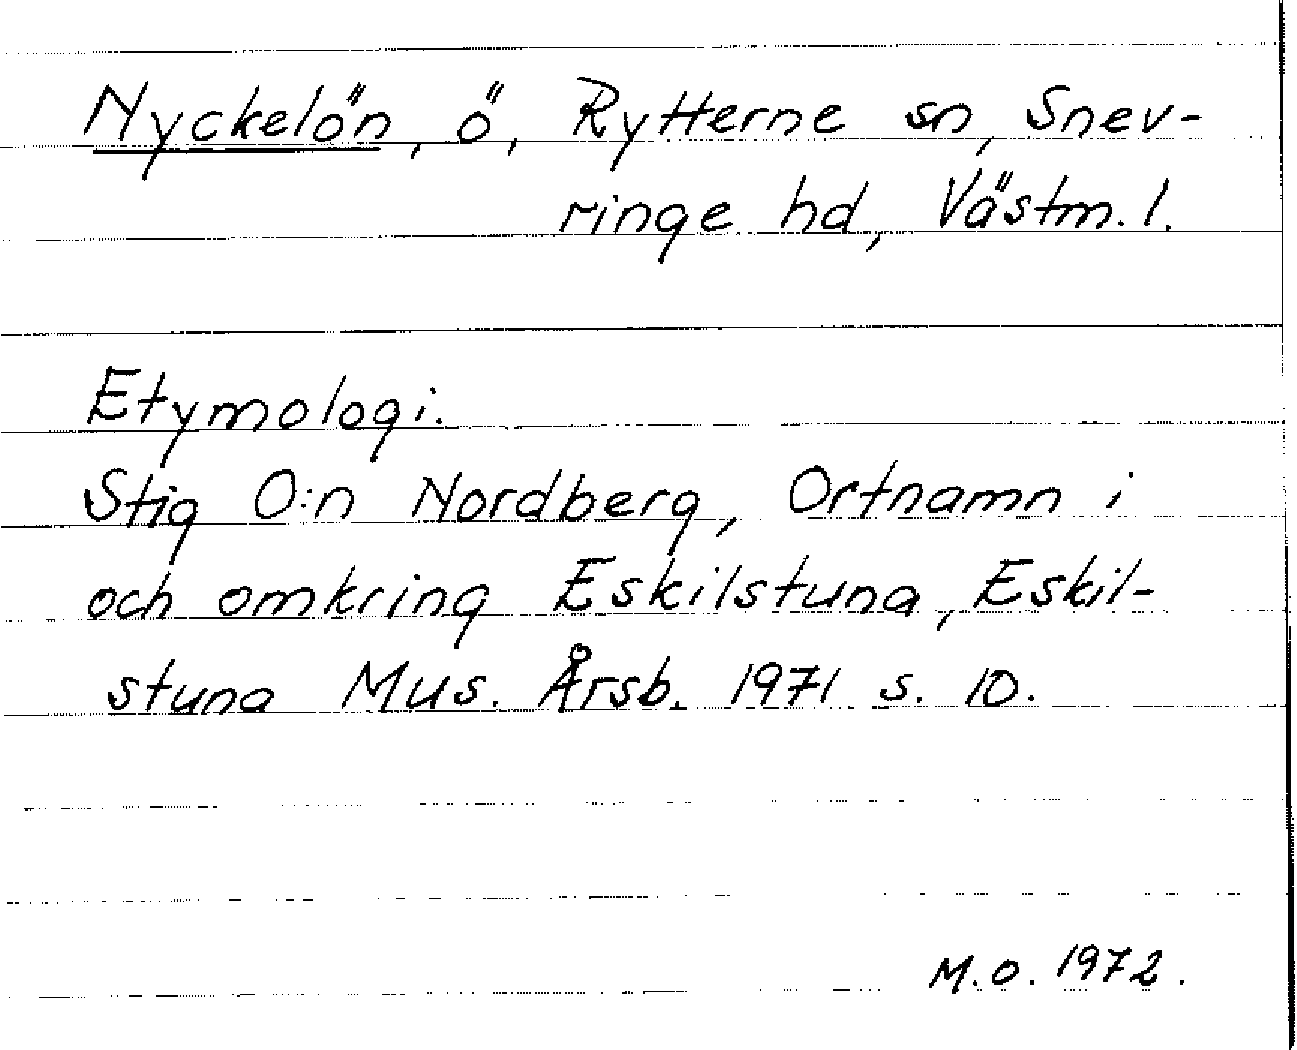 Nyckelön, ö, Rytterne sn, Snev-
ringe hd, Västm. l.
Etymologi.
Stig O:n Nordberg, Ortnamn i
och omkring Eskilstuna, Eskil-
stuna Mus. Årsb. 1971 s. 10.
M.O. 1972.